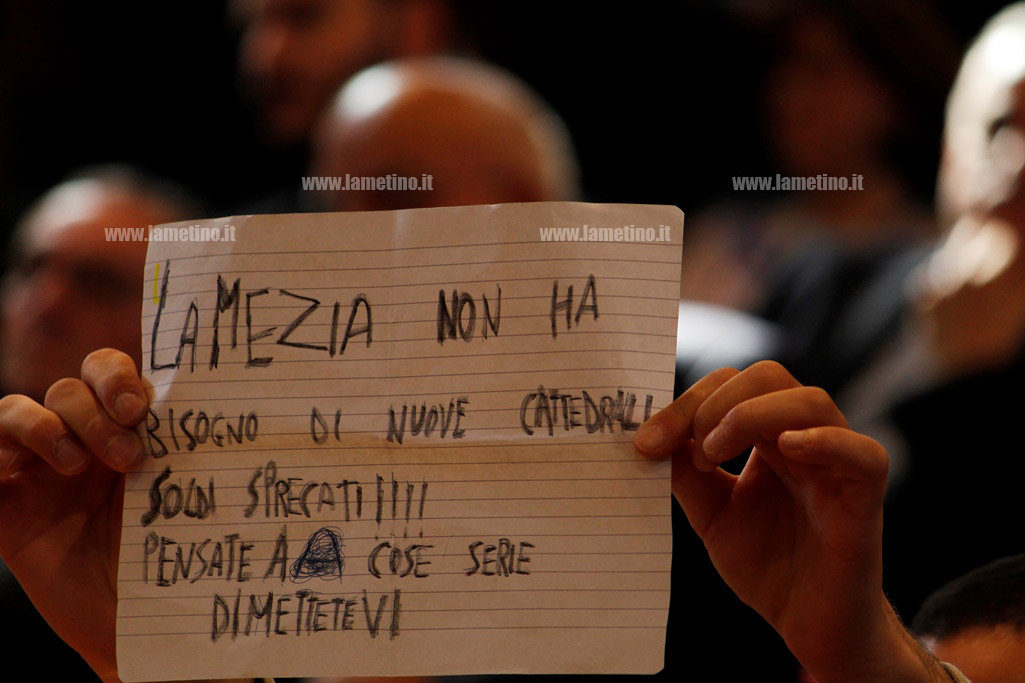 www.lametino.it
www.lametino.it
www.lametino.it
www.lametino.it
LAMEZIA NON HA
BISOGNO DI NUOVE CATTEDRALI
SOLDI SPRECATI!!!!
PENSATE A COSE SERIE
DIMETTETEVI